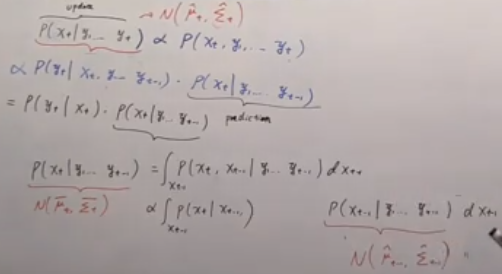 update
P(xₜ | y₁ ... yₜ) → N(μ̂ₜ, Σ̂ₜ)
∝ P(xₜ, y₁, ... yₜ)
∝ P(yₜ | xₜ, y₁ ... yₜ₋₁) · P(xₜ | y₁, ... yₜ₋₁)
= P(yₜ | xₜ) · P(xₜ | y₁ ... yₜ₋₁) prediction
P(xₜ | y₁ ... yₜ₋₁) = ∫ₓₜ₋₁ P(xₜ, xₜ₋₁ | y₁ ... yₜ₋₁) dxₜ₋₁
N(μ̄ₜ, Σ̄ₜ) ∝ ∫ₓₜ₋₁ P(xₜ | xₜ₋₁) P(xₜ₋₁ | y₁ ... yₜ₋₁) dxₜ₋₁
N(μ̂ₜ₋₁, Σ̂ₜ₋₁)